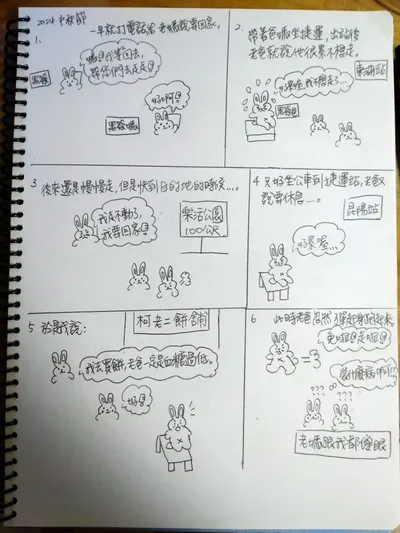 2024 中秋節
1.
一早就打電話給老媽說要回家。
嗨!我要回去,
帶你們去走走!
黑莓
好啊!
黑莓媽
2.
帶著爸媽坐捷運,出站後
老爸就說他很累不想走。
東湖站
好累喔,我不想走…
黑莓爸
3
後來還是慢慢走,但是快到目的地的時候…。
我走不動了,
我要回家!
樂活公園
100公尺
4
只好坐公車到捷運站,老爸又
說要休息…。
昆陽站
好累喔…
5
於是我說:
柯老二餅舖
我去買餅,老爸一定是血糖過低。
好!
6
此時老爸忽然彈起身跑起來。
=3
走啦!
發什麼病啊!!
???
???
老媽跟我都傻眼